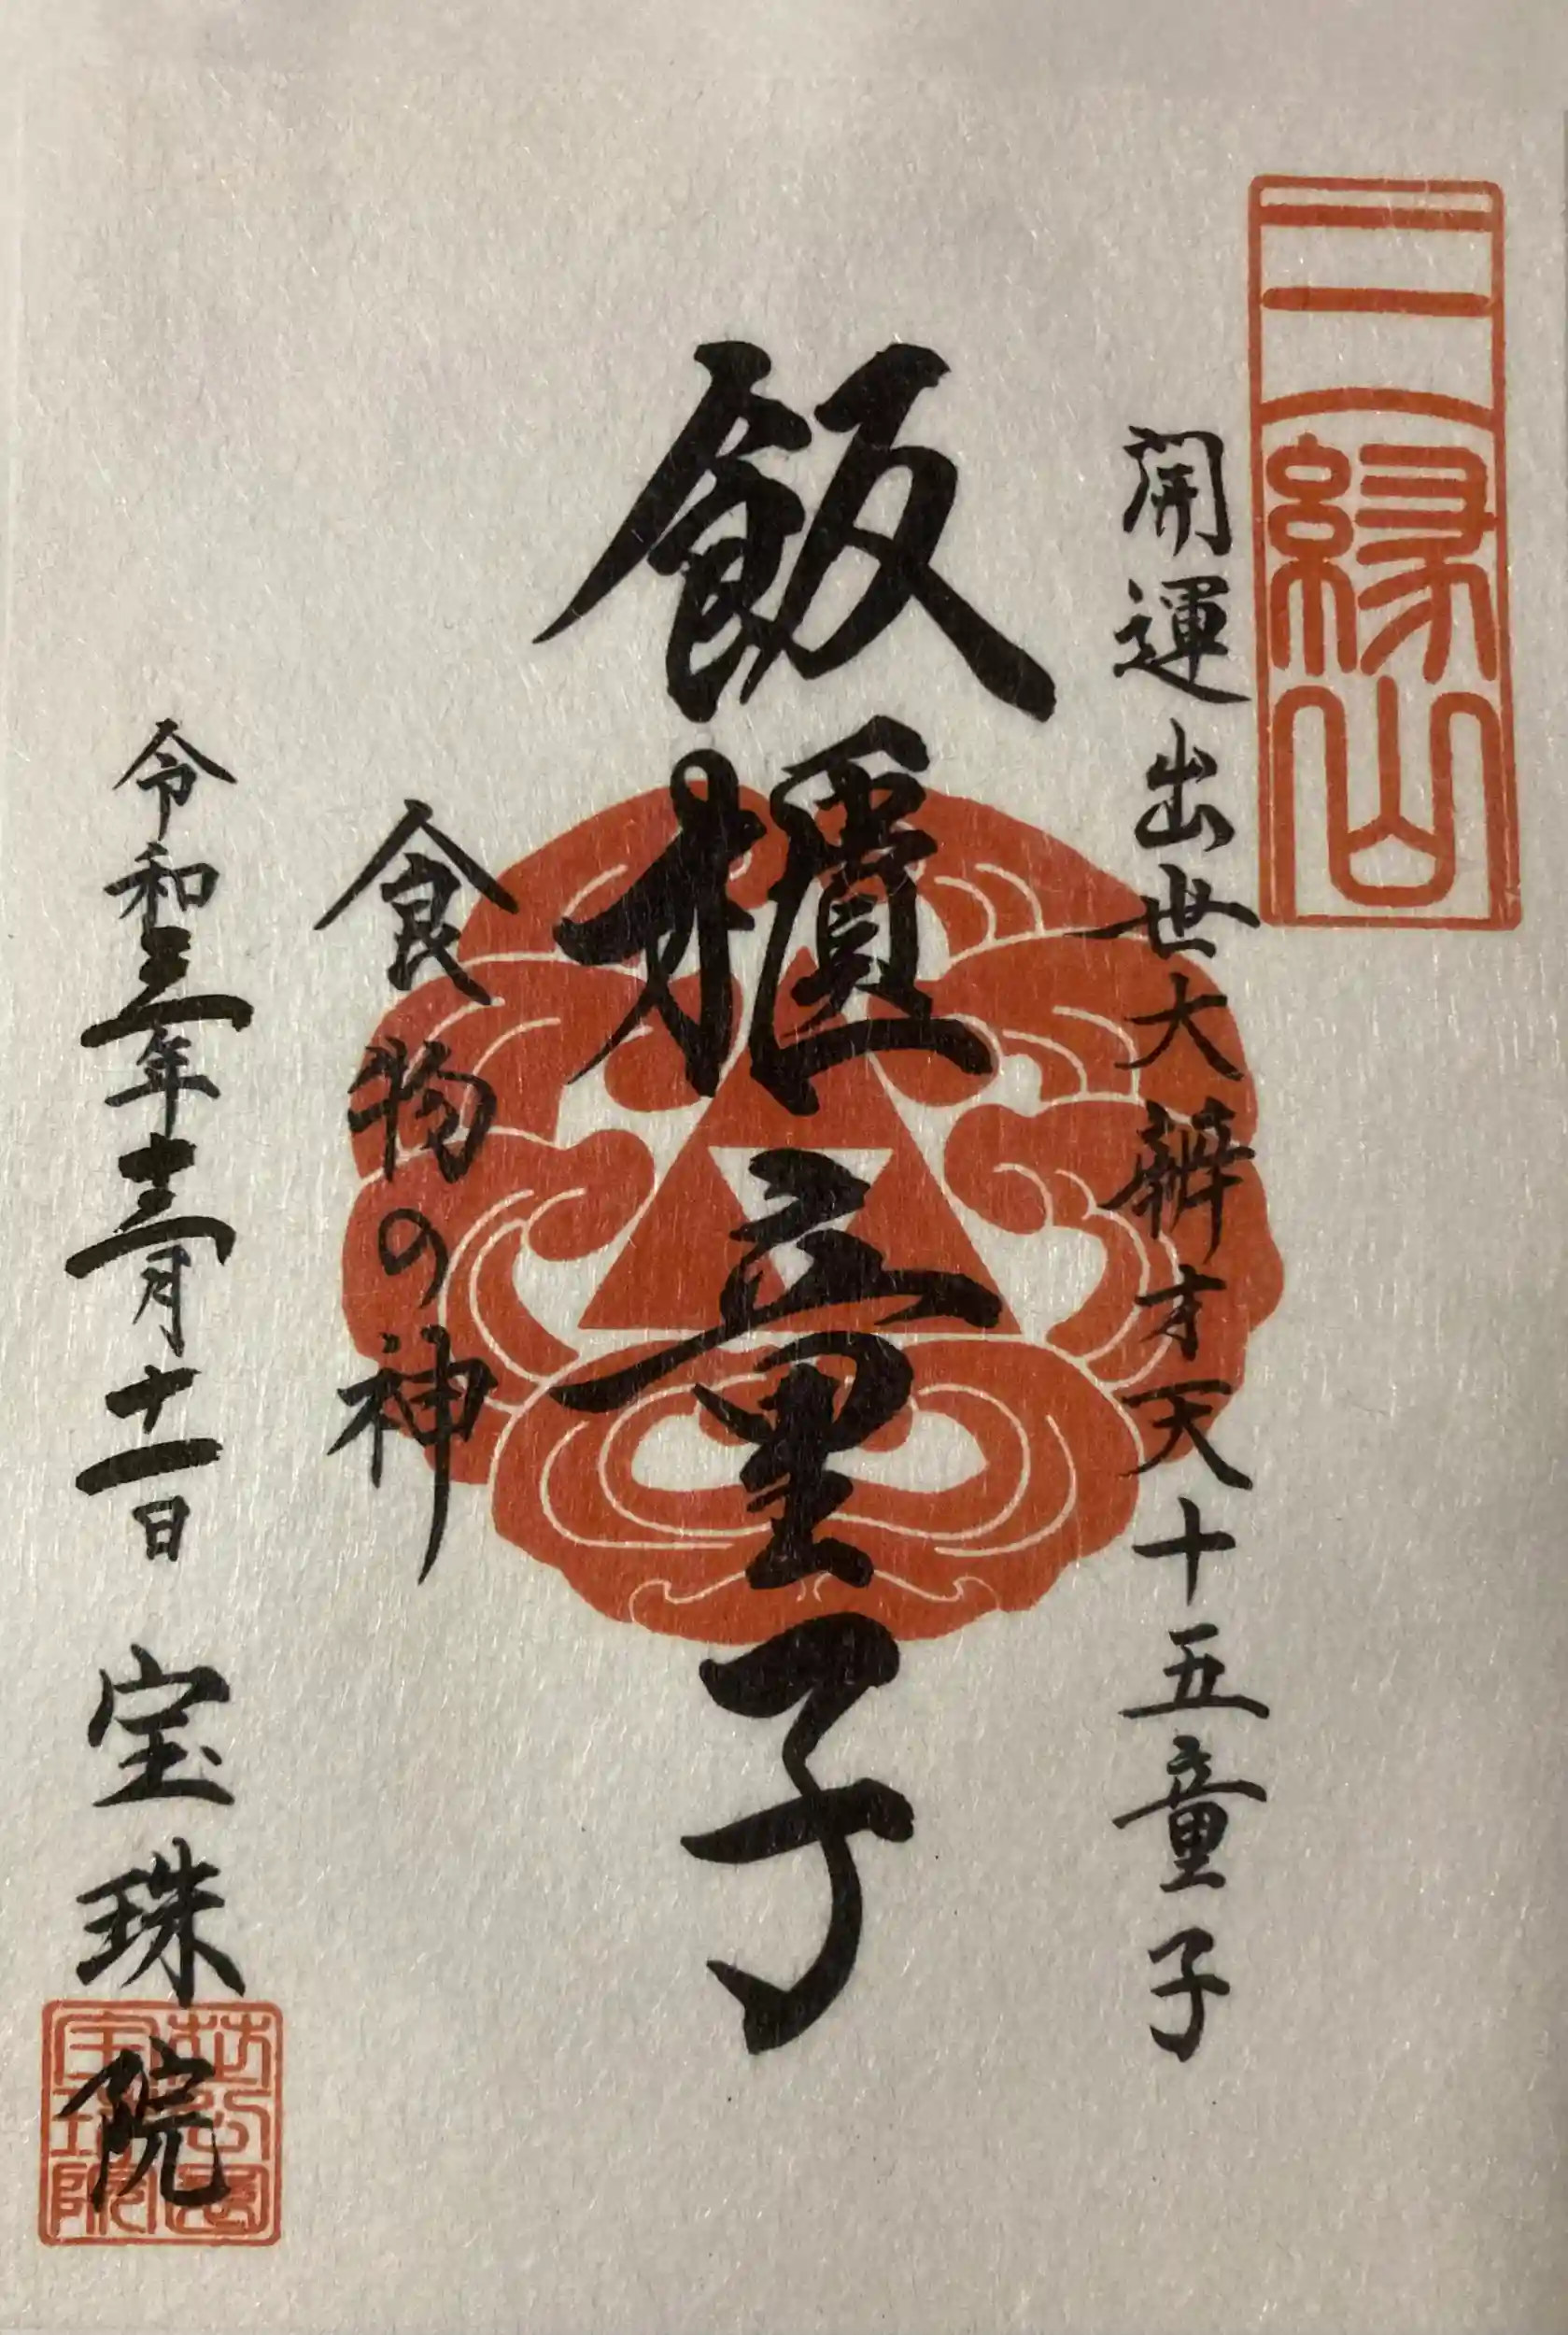 三縁山
開運出世大辨才天十五童子
飯櫃童子
食物の神
令和三年十二月十一日 宝珠院
芝公園
宝珠院